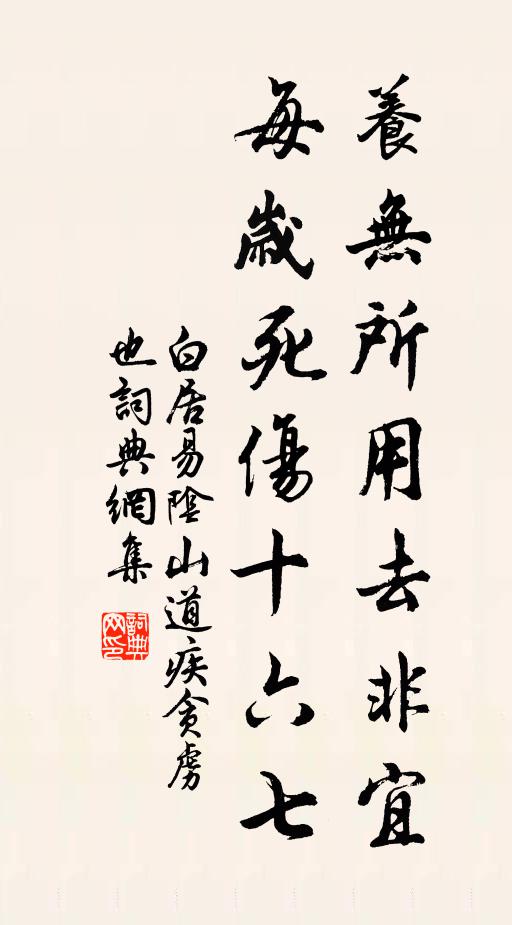 養無所用去非宜
每歲死傷十六七
白居易陰山道疾貪虜
也詞典網集
詞典网印